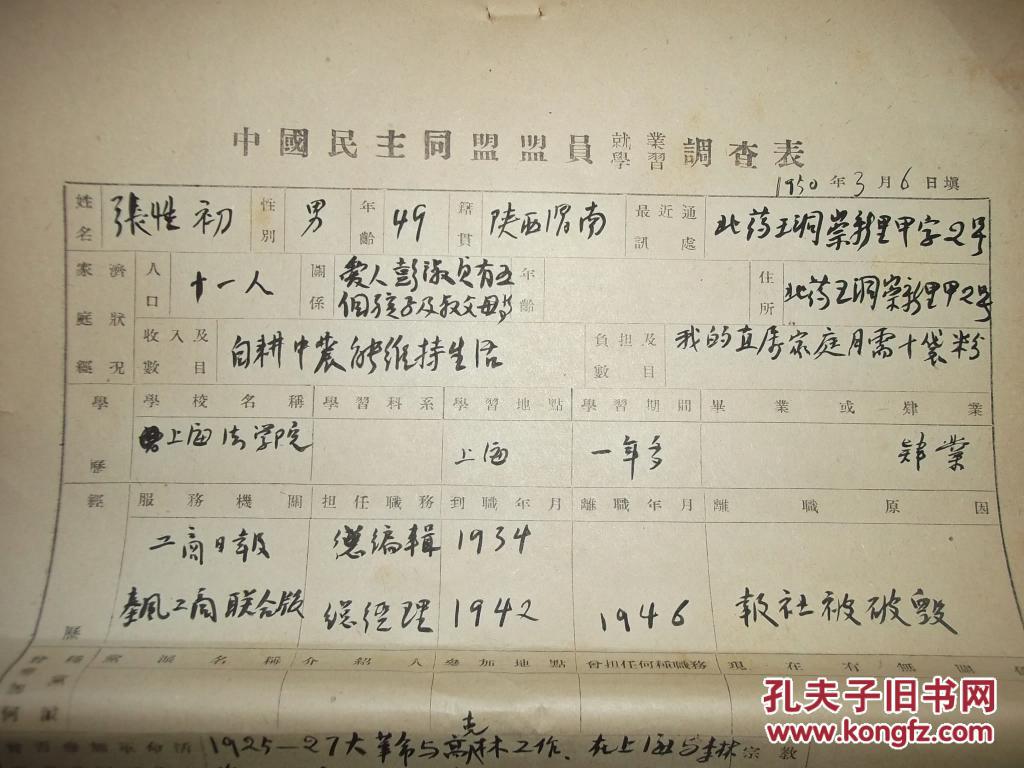 中國民主同盟盟員就業學習調查表
1950年3月6日填
姓名 張性初 性別 男 年齡 49 籍貫 陕西渭南 最近通訊處 北药王洞崇新里甲字2号
家庭經濟狀況 人口 十一人 關係 愛人彭淑贞有五個孩子及叔父母 年齡 住所 北药王洞崇新里甲2号
收入及數目 自耕中農能維持生活 負担及數目 我的直属家庭月需十袋粉
學歷 學校名稱 學習科系 學習地點 學習期間 畢業或肄業
上海法学院 上海 一年多 肄業
經歷 服務機關 担任職務 到職年月 離職年月 離職原因
工商日報 總編輯 1934
秦風工商联合版 総經理 1942 1946 報社被破毀
黨派名稱 介紹人 參加地點 曾担任何種職務 現在有無關
1925—27大革命与高克林工作、在上海与李林 宗教
孔夫子旧书网
www.kongfz.com